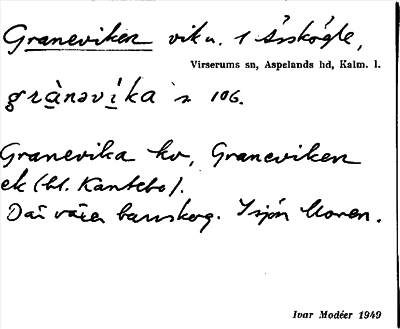 Graneviken vik u. 1 Årsköqle,
Virserums sn, Aspelands hd, Kalm. l.
grànəvi̱ka s 106.
Granevika kv, Graneviken
ek (bl. Kantebo).
Där växer barrskog. I sjön Moren.
Ivar Modéer 1949